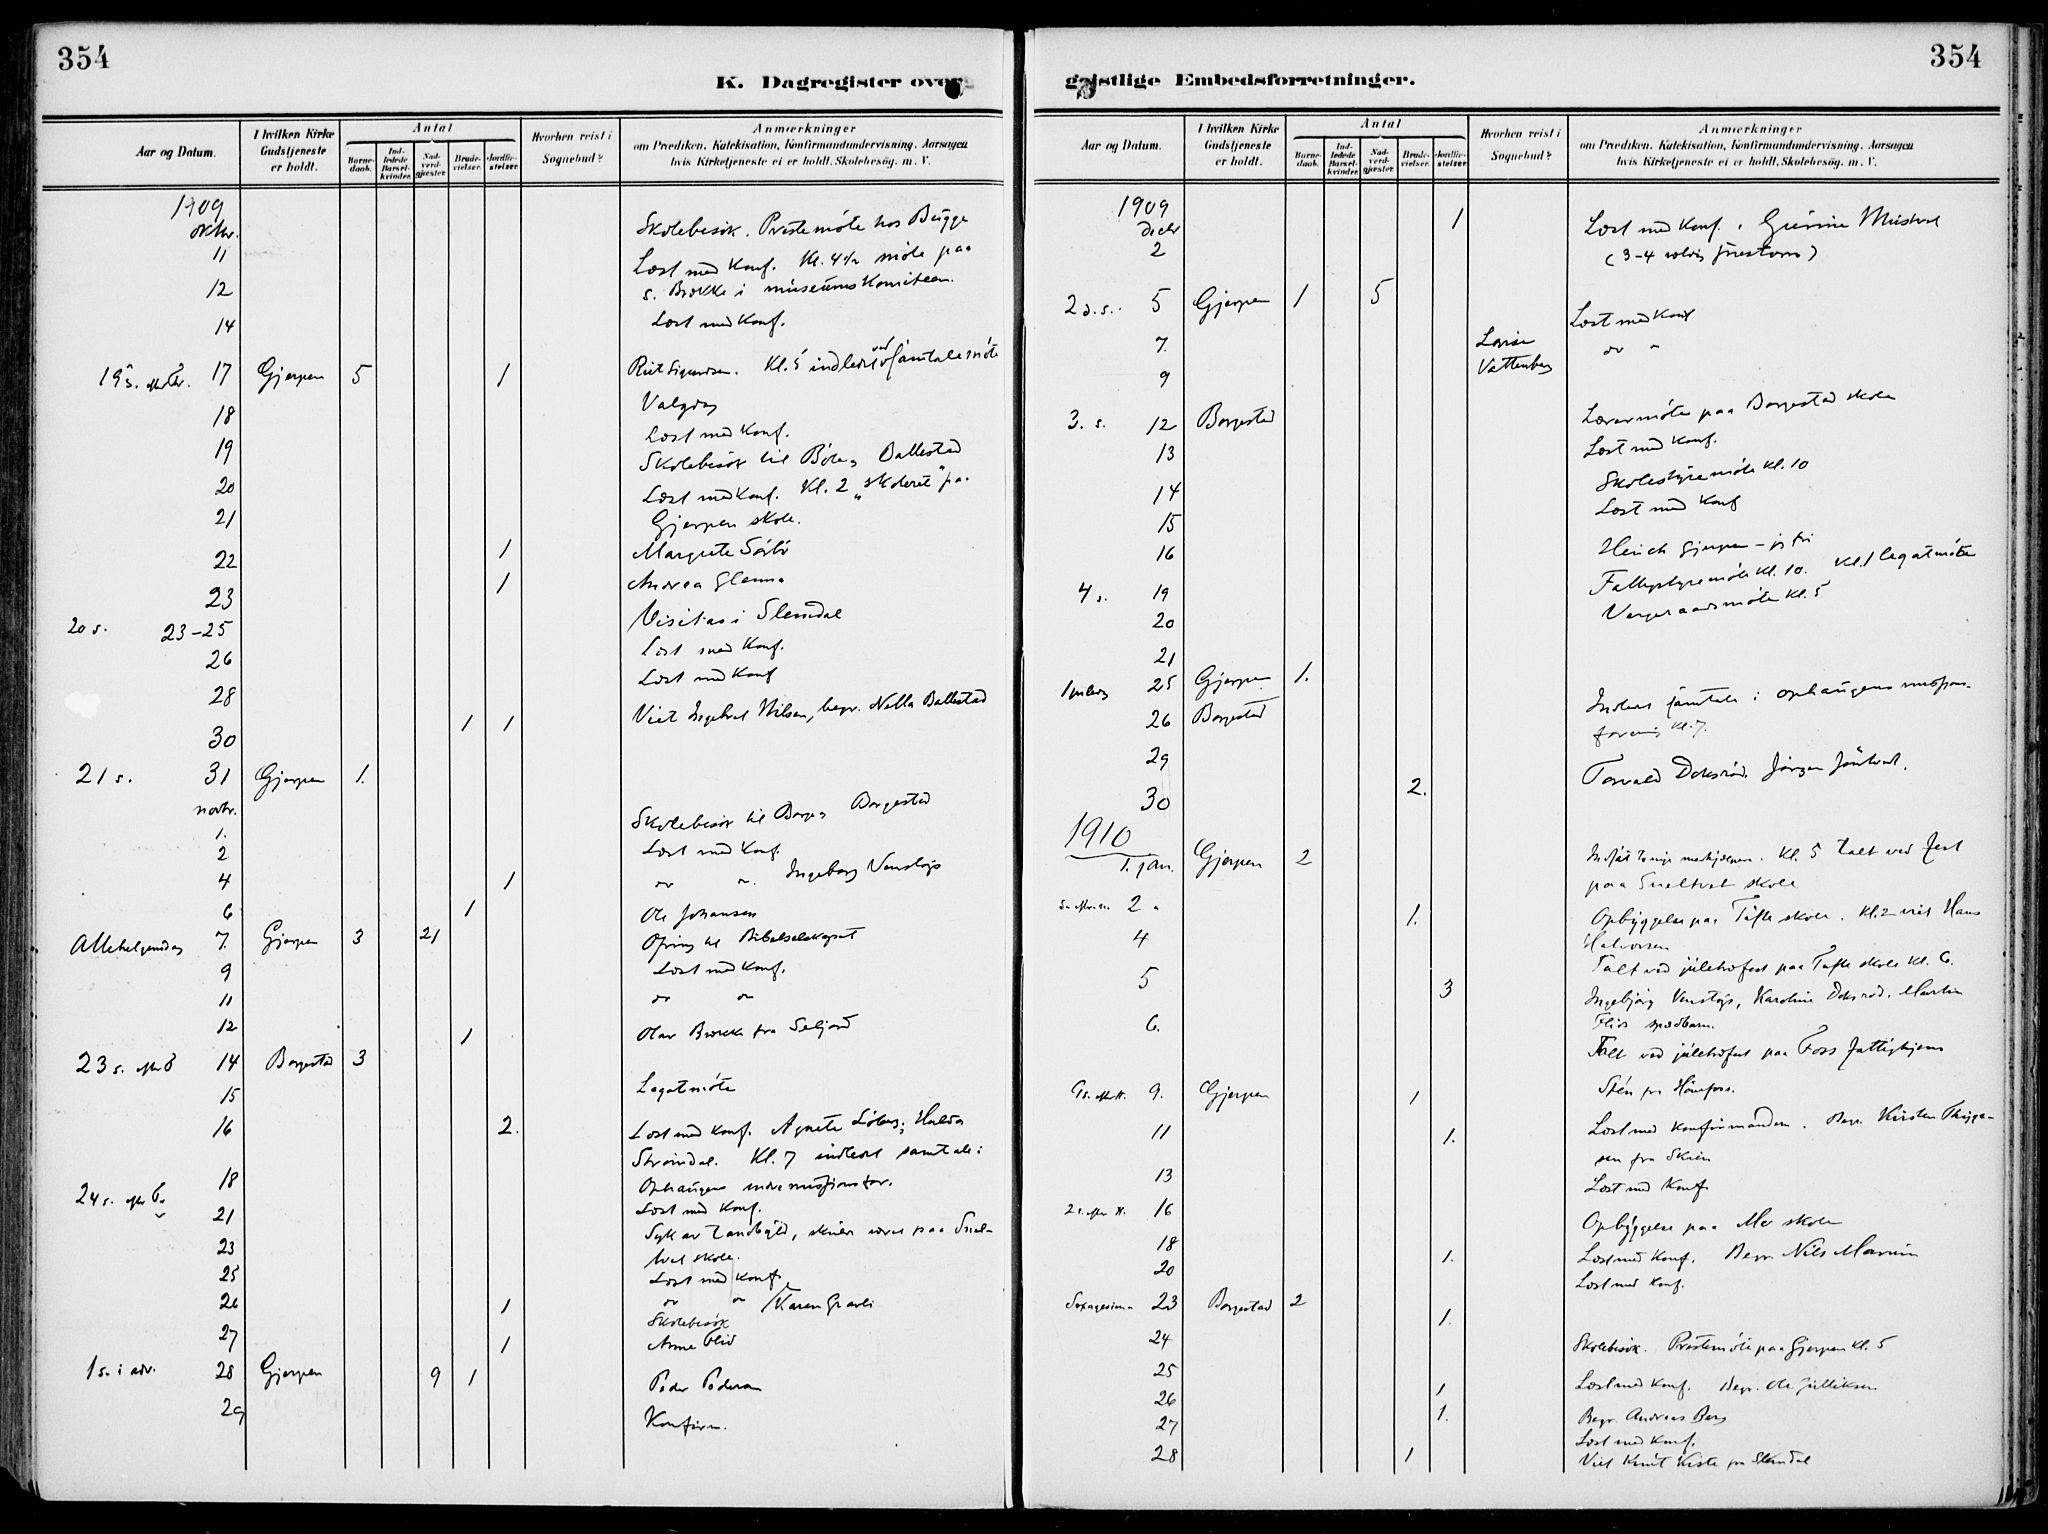 354
K. Dagregister over
Aar og Datum.
I hvilken Kirke Gudstjeneste er holdt.
Antal
Barnedaab.
Indledede Barselkvinder.
Nadverdgjæster.
Brudevielser.
Jordfæstelser.
Hvorhen reist i Sognebud?
Anmærkninger
om Prædiken, Katekisation, Konfirmandundervisning. Aarsagen
hvis Kirketjeneste ei er holdt. Skolebesög. m. V.
1909
oktbr.
11 Skolebesøk. Prestemøte hos Bugge
12 Læst med Konf. Kl. 4½ møte paa
s. Brekke i museumskomiteen.
14 Læst med Konf.
19 s. efter Tr. 17 Gjerpen 5 1 Kl. 5 indledet ved samtalemøte
18 Valgdag
19 Læst med Konf.
20 Skolebesøk til Böle, Ballestad
21 Læst med Konf. Kl. 2 paa
Gjerpen skole.
22 1 Margrete Sörbö
23 1 Andrea Glenna
20 s. 23-25 Visitas i Slemdal
26 Læst med Konf.
28 Læst med Konf
30 1 1 Viet Ingebret Nilsen, begr. Nella Ballestad
21 s. 31 Gjerpen 1.
novbr.
1. Skolebesøk til Borge, Borgestad
2 Læst med Konf.
4 1 do do. Ingeborg Venstøp
6 1 Ole Johansen
Allehelgensdag 7. Gjerpen 3 21 Ofring til Bibelselskapet
9 Læst med Konf.
11 do do
12 1 Olav Brekke fra Seljord
23 s. efter 14 Borgestad 3
15 Legatmöte
16 2. Læst med Konf. Agnete Hulda
Strömdal. Kl. 7 indledet samtale i
18 Ophaugens indremissionsfor.
24 s. efter 21 Læst med Konf.
23 Syk av skulde været paa Snel-
tvet skole.
25 Læst med Konf
26 1 do do Karen Gravli
Skolebesøk
27 1 Anne Flid
1 s. i adv. 28 Gjerpen 9 1 Peder Pedersen
29 Konfirm.
354
geistlige Embedsforretninger.
Aar og Datum.
I hvilken Kirke Gudstjeneste er holdt.
Antal
Barnedaab.
Indledede Barselkvinder.
Nadverdgjæster.
Brudevielser.
Jordfæstelser.
Hvorhen reist i Sognebud?
Anmærkninger
om Prædiken, Katekisation, Konfirmandundervisning. Aarsagen
hvis Kirketjeneste ei er holdt. Skolebesög. m. V.
1909
Decbr
2 1 Læst med Konf.
2 s. 5 Gjerpen 1 5
7. Lovise Læst med Konf
9 Vattenberg do "
3. s. 12 Borgestad
13 Lærermöte paa Borgestad skole
14 Læst med Konf.
15 Skolestyremöte kl. 10
16 Læst med Konf
4 s. 19 Gjerpen - jeg fri
20 Fattigstyremöte kl. 10. Kl. 1 legatmöte
21 Vergeraadsmöte kl. 5
1 juledag 25 Gjerpen 1.
26 Borgestad
29 Indledet samtale i Ophaugens mission-
forening kl. 7.
30 2. Torvald Doksröd. Jørgen
1910
1. jan. Gjerpen 2 Kl. 5 talt ved fest
paa Sneltvet skole
2 1. Opbyggelse paa Tufte skole. Kl. 2 viet Hans
Halvorsen
4 Talt ved juletræfest paa Tufte skole kl. 6.
5 3 Ingebjörg Venstöp, Karoline Doksröd. Martin
Flids spædbarn.
6. Talt ved juletræfest paa Foss fattighjem
1 s. efter H. 9. Gjerpen 1 Steen fra Hönefoss.
11 1. Læst med Konfirmanderne. Begr. Kirsten
sen fra Skien
13 Læst med Konf
2 s. efter H. 16 Opbyggelse paa Mæ skole
18 1. Læst med Konf. Begr. Nils
20 Læst med Konf.
Sexagesima 23 Borgestad 2
24 1. Skolebesøk. Prestemöte paa Gjerpen kl. 5
25 Læst med Konf. Begr. Ole Gulliksen
26 1 Begr. Andreas Berg
27 1. Læst med Konf.
28 1 Viet Knut fra Slemdal